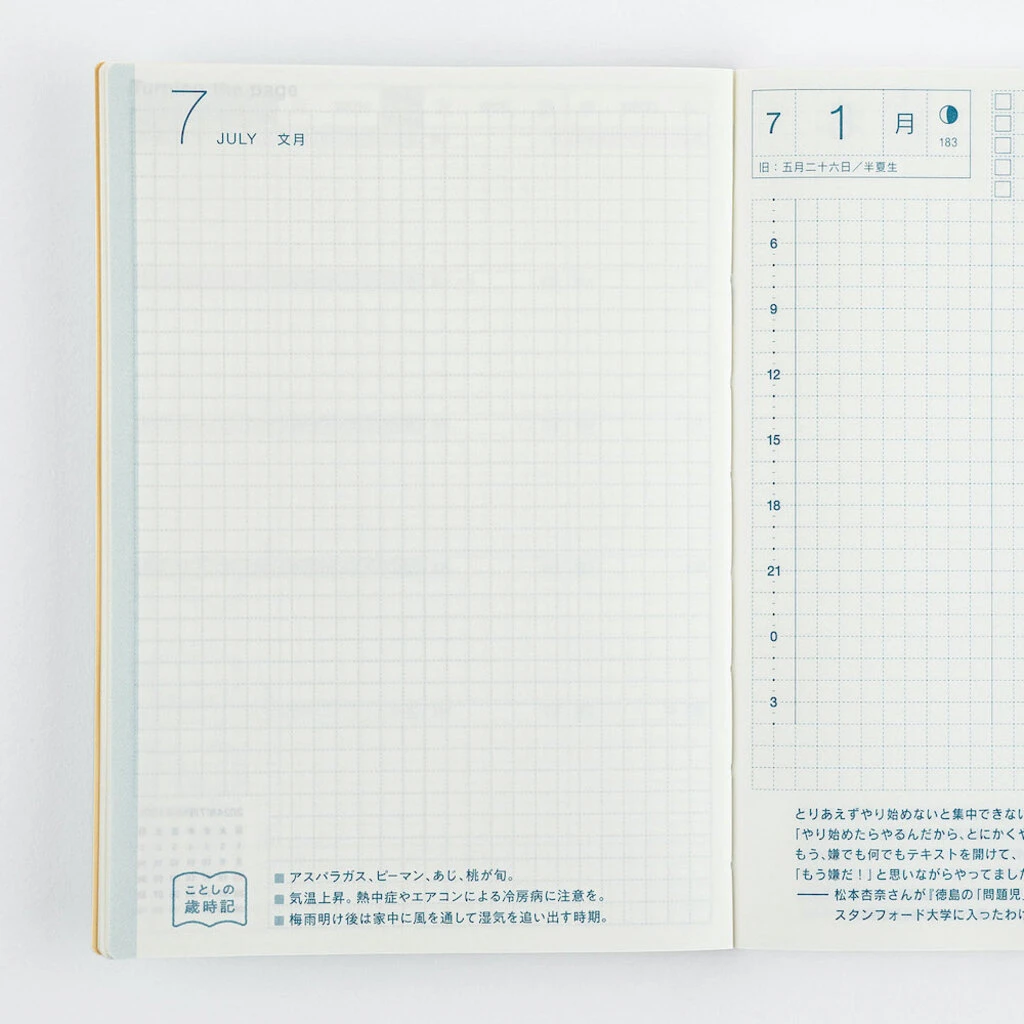 7 JULY 文月
ことしの
歳時記
■ アスパラガス、ピーマン、あじ、桃が旬。
■ 気温上昇。熱中症やエアコンによる冷房病に注意を。
■ 梅雨明け後は家中に風を通して湿気を追い出す時期。
7 1 月
183
旧：五月二十六日／半夏生
6
9
12
15
18
21
0
3
とりあえずやり始めないと集中できない
「やり始めたらやるんだから、とにかくや
もう、嫌でも何でもテキストを開けて、
「もう嫌だ！」と思いながらやってました
── 松本杏奈さんが『徳島の「問題児」
スタンフォード大学に入ったわけ